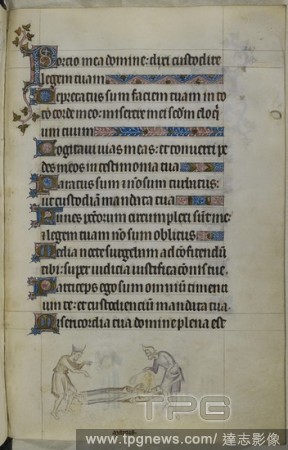 Portio mea domine: dixi custodire
legem tuam
Deprecatus sum faciem tuam in to
to corde meo: miserere mei scdm eloqui
um tuum
Cogitavi vias meas: et converti pe
des meos in testimonia tua
Paratus sum et non sum turbatus:
ut custodiam mandata tua
Funes pctorum circumplexi sunt me:
et legem tuam non sum oblitus
Media nocte surgebam ad confitendum
tibi: super iudicia iustificationis tue
Particeps ego sum omnium timenti
um te: et custodientium mandata tua
Misericordia tua domine plena est
TPG
www.tpgnews.com / 達志影像